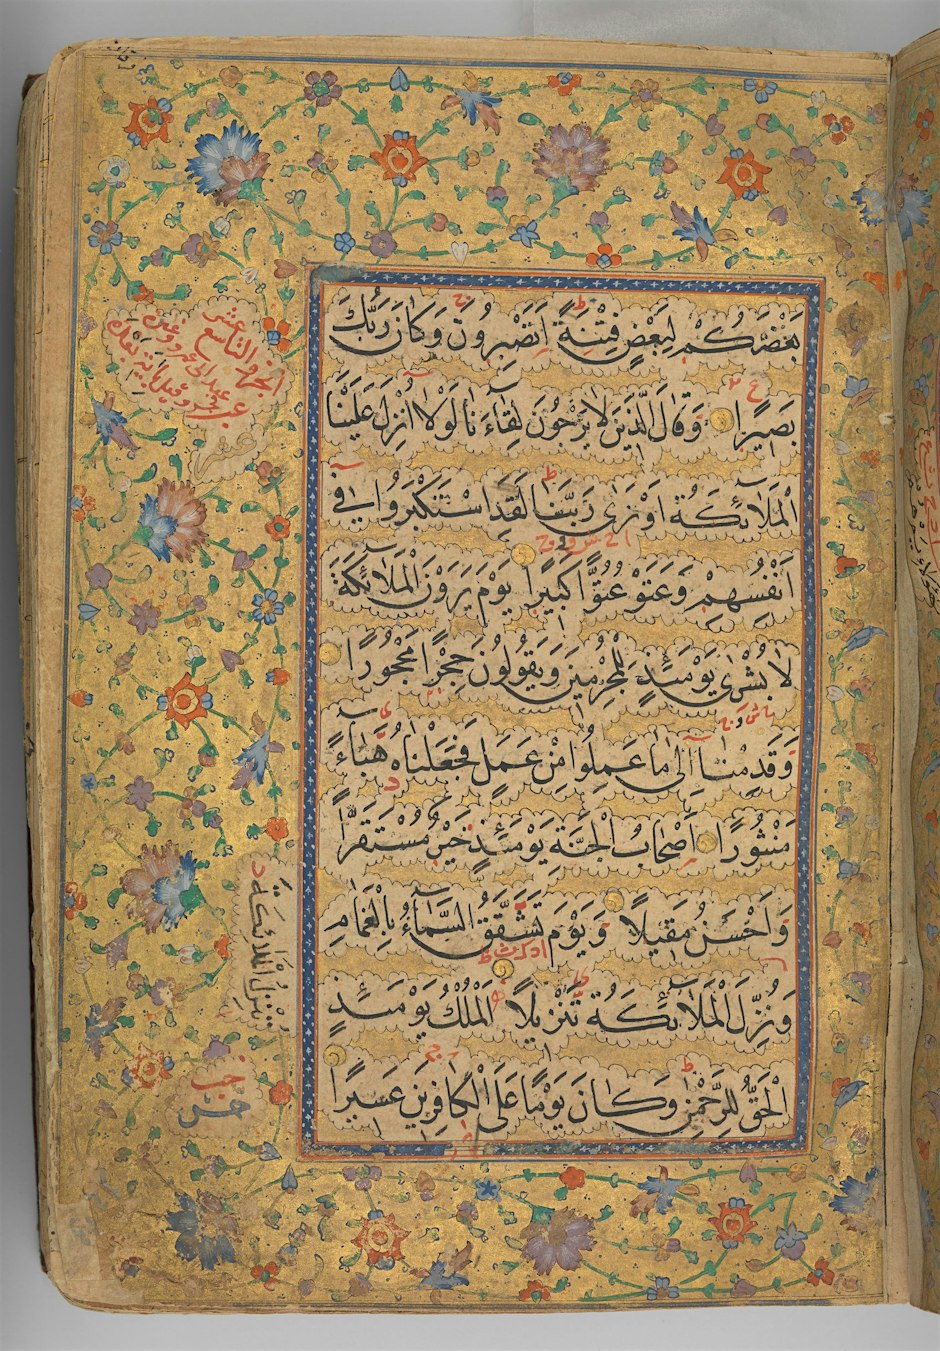 بَعْضَكُمْ لِبَعْضٍ فِتْنَةً اَتَصْبِرُونَ وَكَانَ رَبُّكَ
بَصِيرًا وَقَالَ الَّذِينَ لَا يَرْجُونَ لِقَآءَنَا لَوْلَا اُنْزِلَ عَلَيْنَا
الْمَلَآئِكَةُ اَوْ نَرٰى رَبَّنَا لَقَدِ اسْتَكْبَرُوا فِي
اَنْفُسِهِمْ وَعَتَوْ عُتُوًّا كَبِيرًا يَوْمَ يَرَوْنَ الْمَلَآئِكَةَ
لَا بُشْرٰى يَوْمَئِذٍ لِلْمُجْرِمِينَ وَيَقُولُونَ حِجْرًا مَحْجُورًا
وَقَدِمْنَا اِلٰى مَا عَمِلُوا مِنْ عَمَلٍ فَجَعَلْنَاهُ هَبَآءً
مَنْثُورًا اَصْحَابُ الْجَنَّةِ يَوْمَئِذٍ خَيْرٌ مُسْتَقَرًّا
وَاَحْسَنُ مَقِيلًا وَيَوْمَ تَشَقَّقُ السَّمَآءُ بِالْغَمَامِ
وَنُزِّلَ الْمَلَآئِكَةُ تَنْزِيلًا اَلْمُلْكُ يَوْمَئِذٍ
الْحَقُّ لِلرَّحْمٰنِ وَكَانَ يَوْمًا عَلَى الْكَافِرِينَ عَسِيرًا
الجزو التاسع عشر